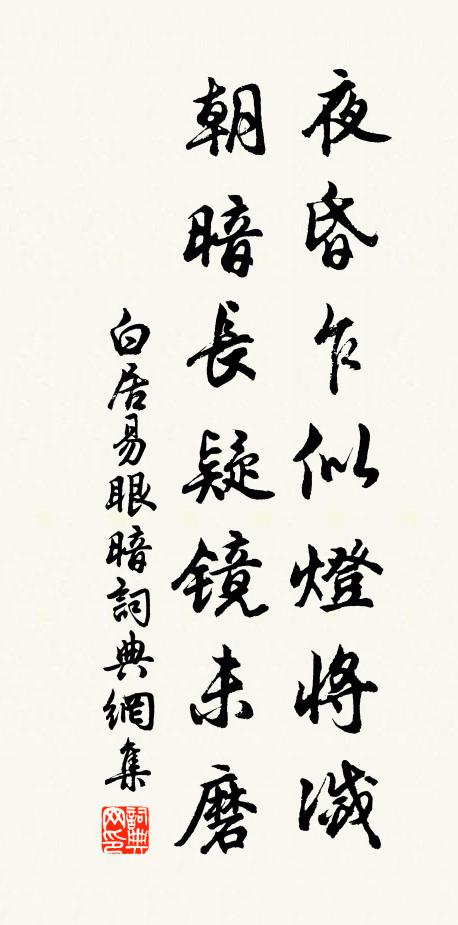 夜昏乍似燈將滅
朝暗長疑鏡未磨
白居易眼暗詞典網集
詞典網印